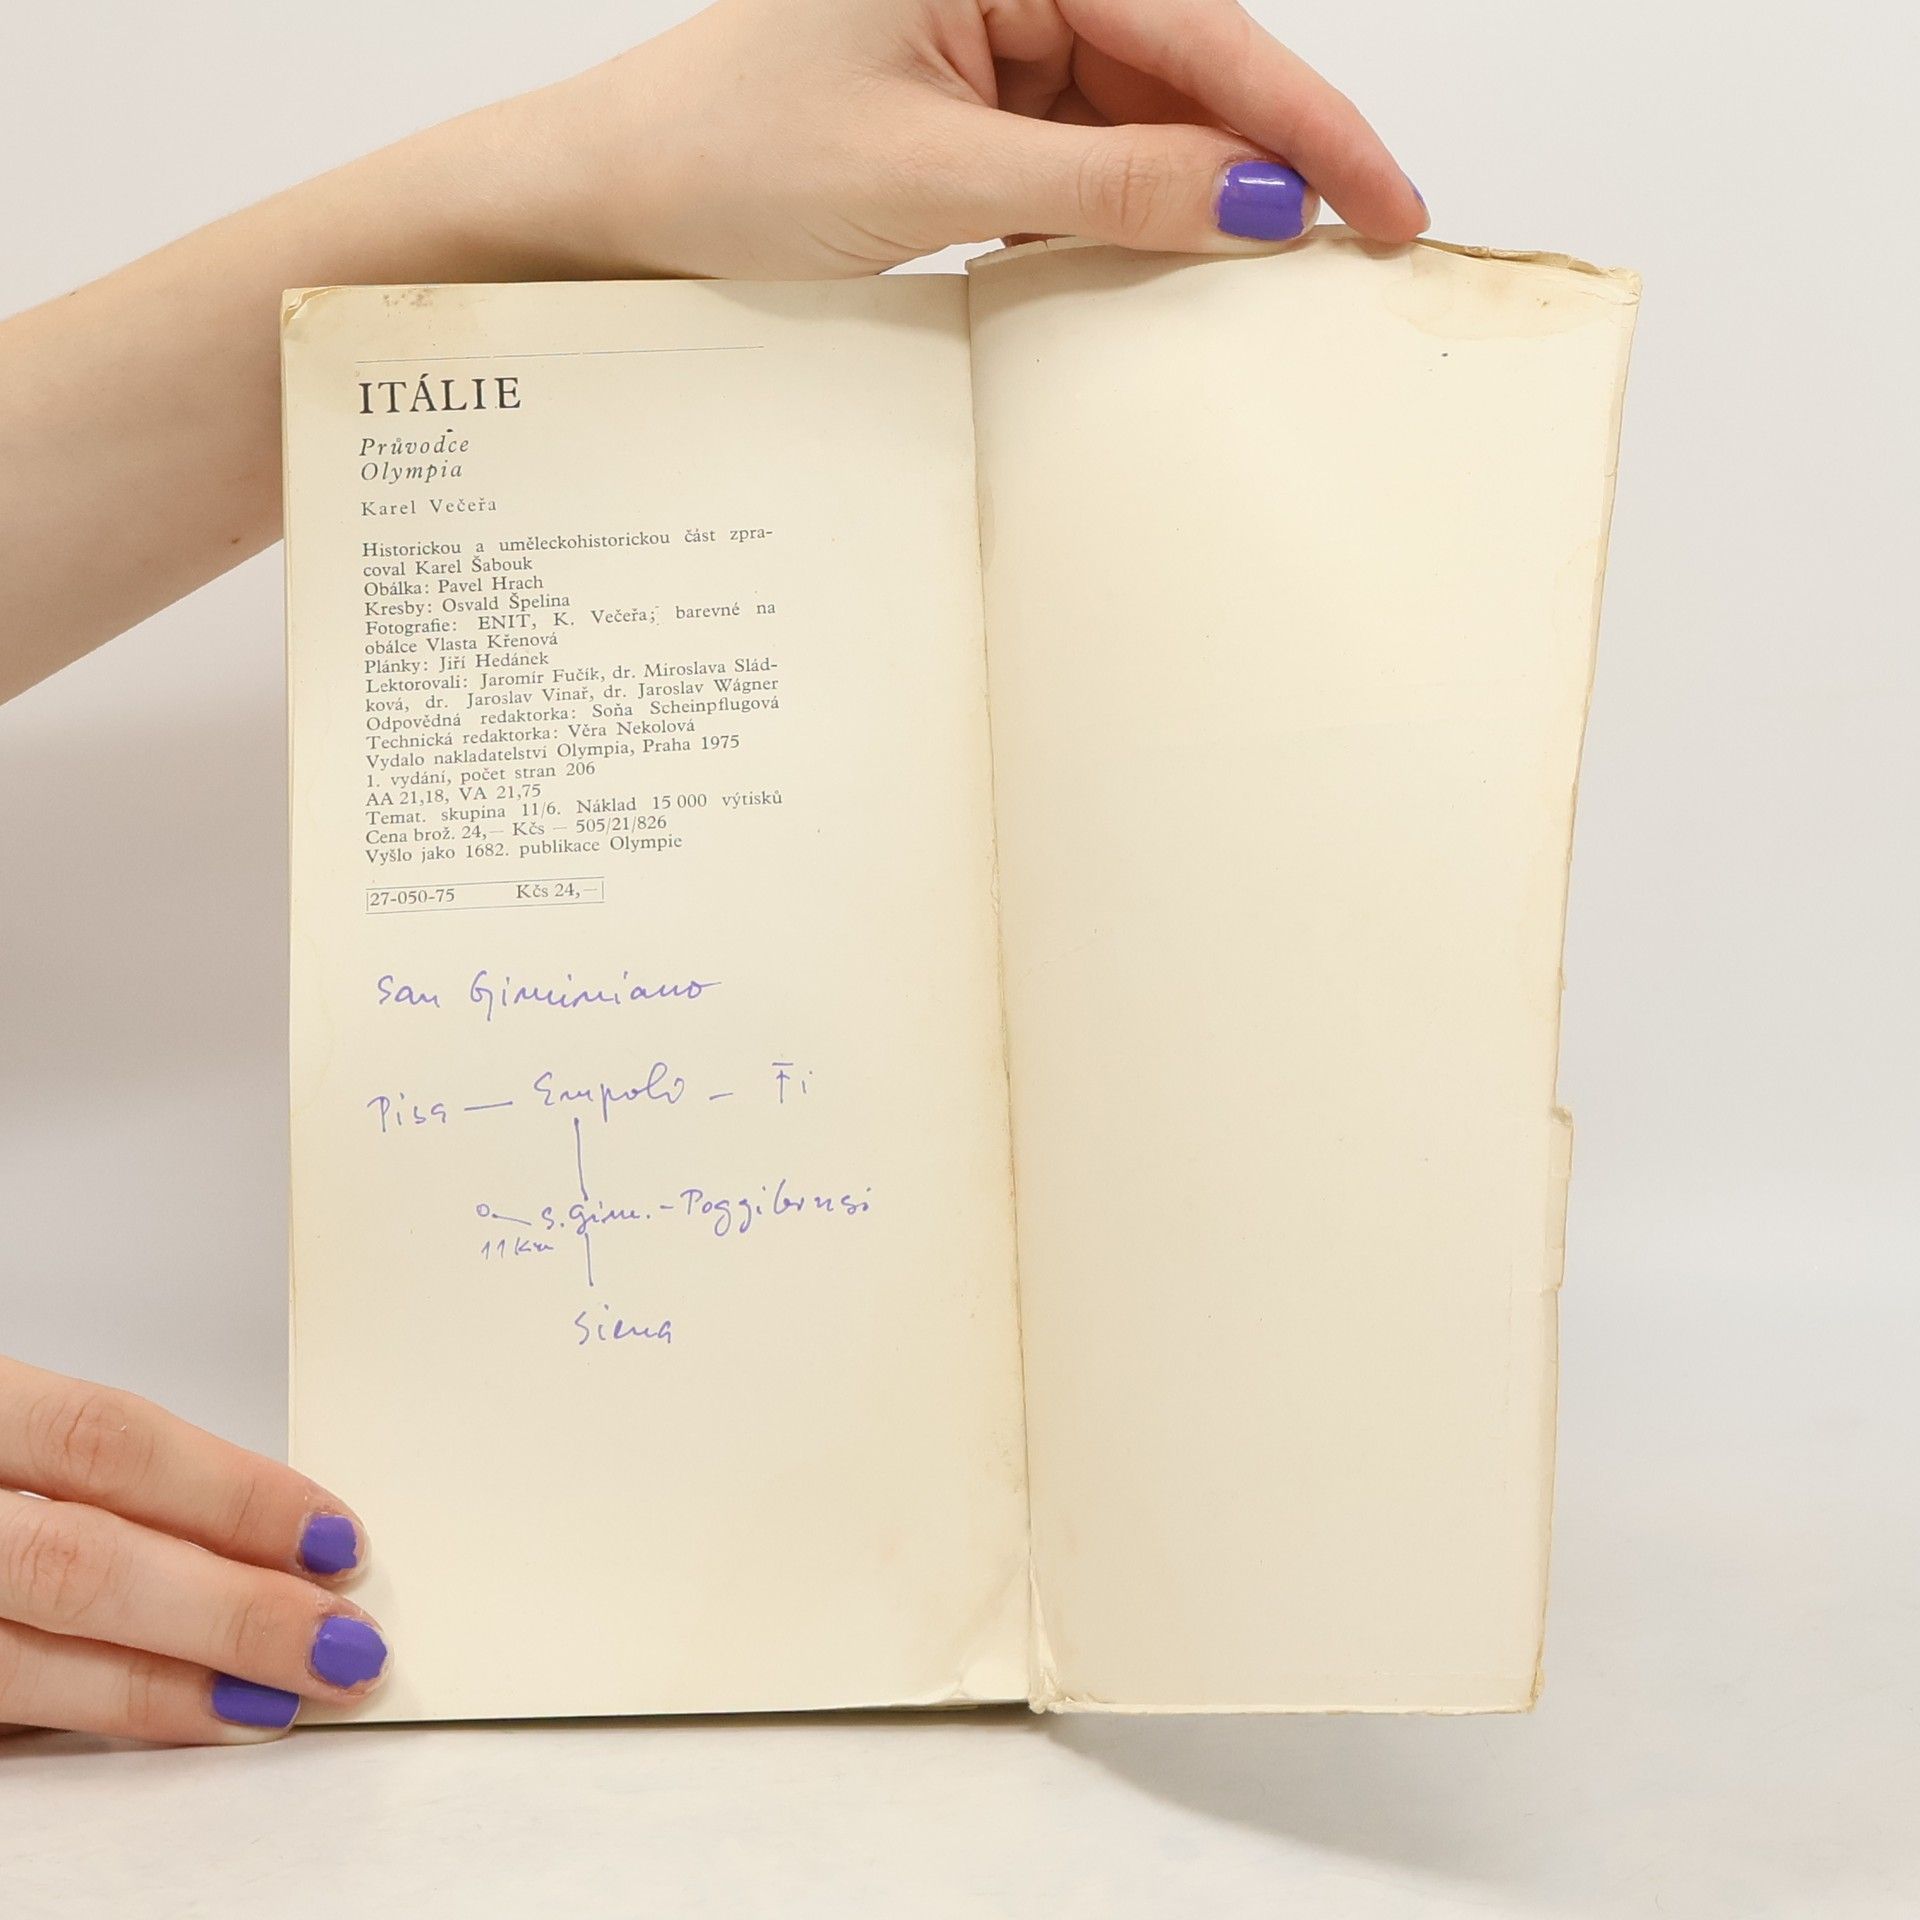 ITÁLIE
Průvodce
Olympia
Karel Večeřa
Historickou a uměleckohistorickou část zpra-
coval Karel Šabouk
Obálka: Pavel Hrach
Kresby: Osvald Špelina
Fotografie: ENIT, K. Večeřa; barevné na
obálce Vlasta Křenová
Plánky: Jiří Hedánek
Lektorovali: Jaromír Fučík, dr. Miroslava Slád-
ková, dr. Jaroslav Vinař, dr. Jaroslav Wágner
Odpovědná redaktorka: Soňa Scheinpflugová
Technická redaktorka: Věra Nekolová
Vydalo nakladatelství Olympia, Praha 1975
1. vydání, počet stran 206
AA 21,18, VA 21,75
Temat. skupina 11/6. Náklad 15 000 výtisků
Cena brož. 24,— Kčs — 505/21/826
Vyšlo jako 1682. publikace Olympie
27-050-75 Kčs 24,—
San Giminiano
Pisa — Empoli — Fi
S. Gim. - Poggibonsi
11 km
Siena